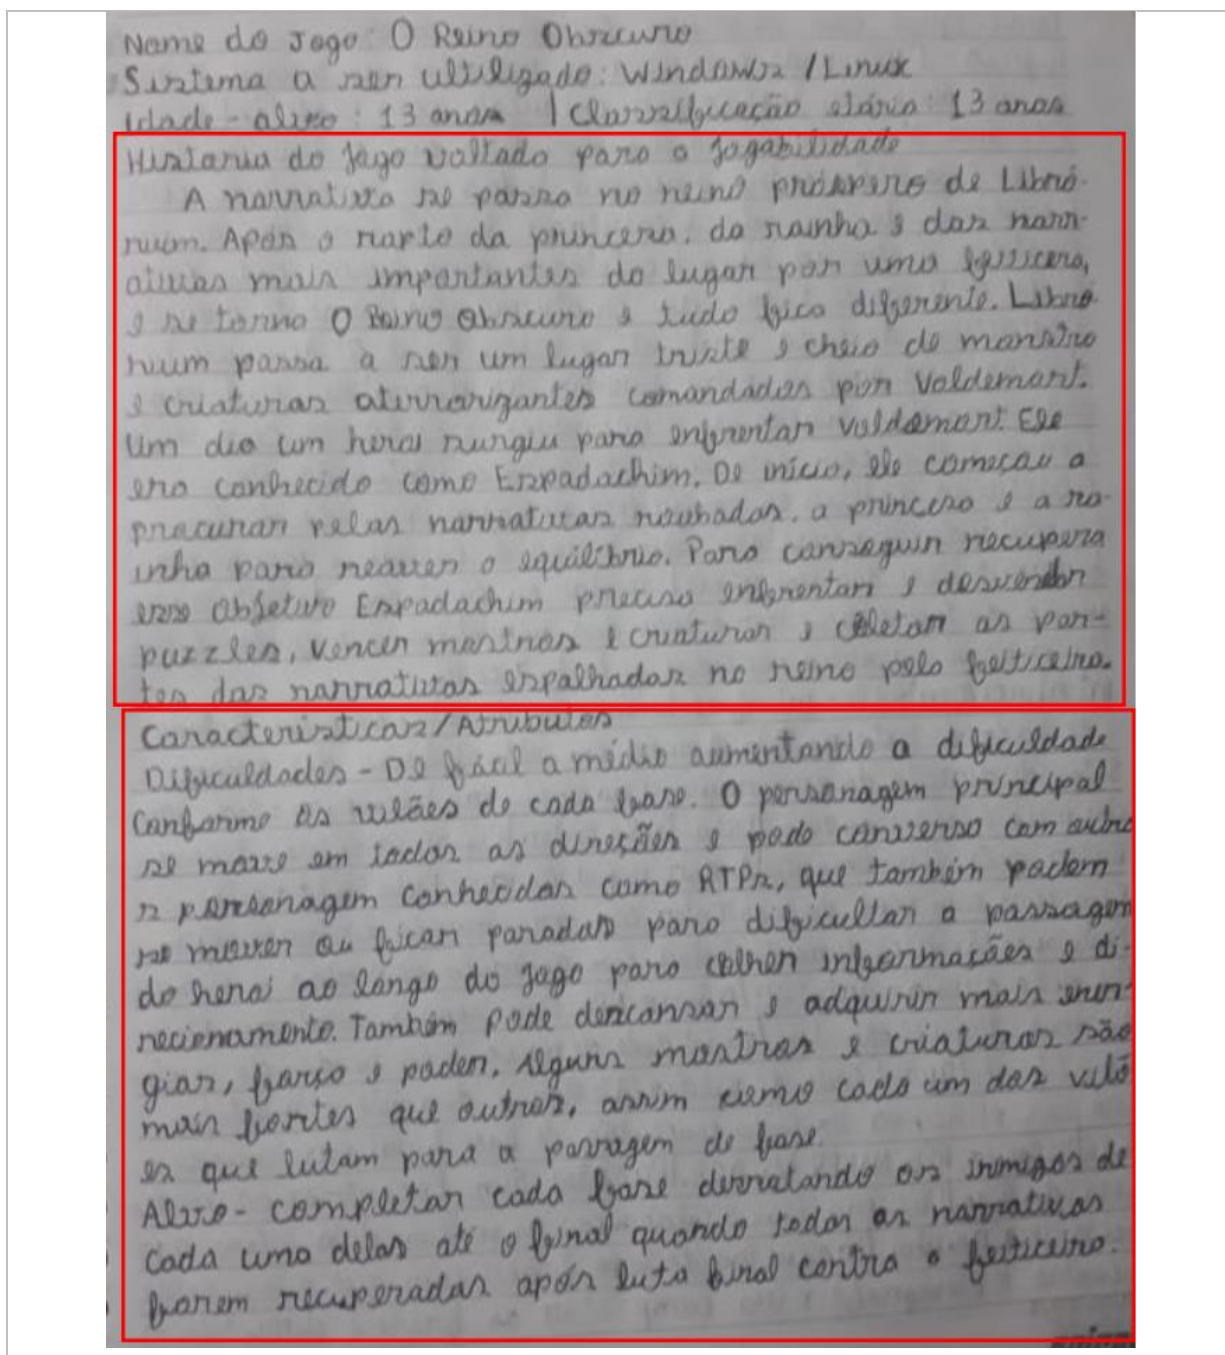 Nome do Jogo: O Reino Obscuro
Sistema a ser ultilizado: Windows / Linux
Idade-alvo: 13 anos | Classificação etária: 13 anos
Historia do jogo voltado para a jogabilidade
A narrativa se passa no reino próspero de Libró-
ruum. Após o rapto da princesa, da rainha e das narr-
ativas mais importantes do lugar por uma
e se torna O Reino Obscuro e tudo fica diferente. Libró
ruum passa a ser um lugar triste e cheio de monstro
e criaturas aterrorizantes comandadas por Valdemort.
Um dia um heroi surgiu para enfrentar Valdemort. Ele
era conhecido como Espadachim. De início, ele começou a
procurar pelas narrativas roubadas, a princesa e a ra-
inha para reaver o equilíbrio. Para conseguir recupera
esse objetivo Espadachim precisa enfrentar e desvendar
puzzles, vencer mostros e criaturas e coletar as par-
tes das narrativas espalhadas no reino pelo feiticeiro.
Características/Atributos
Dificuldades - De fácil a médio aumentando a dificuldade
Conforme os vilões de cada fase. O personagem principal
se move em todas as direções e pode conversa com outro
s personagem conhecidos como RTPs, que também podem
se mover ou ficar parados para dificultar a passagem
do heroi ao longo do jogo para colher informações e di-
recionamento. Também pode descansar e adquirir mais ener-
gias, força e poder. Alguns mostros e criaturas são
mais fortes que outros, assim como cada um dos vilõ
es que lutam para a passagem de fase.
Alvo - completar cada fase derrotando os inimigos de
cada uma delas até o final quando todas as narrativas
forem recuperadas após luta final contra o feiticeiro.